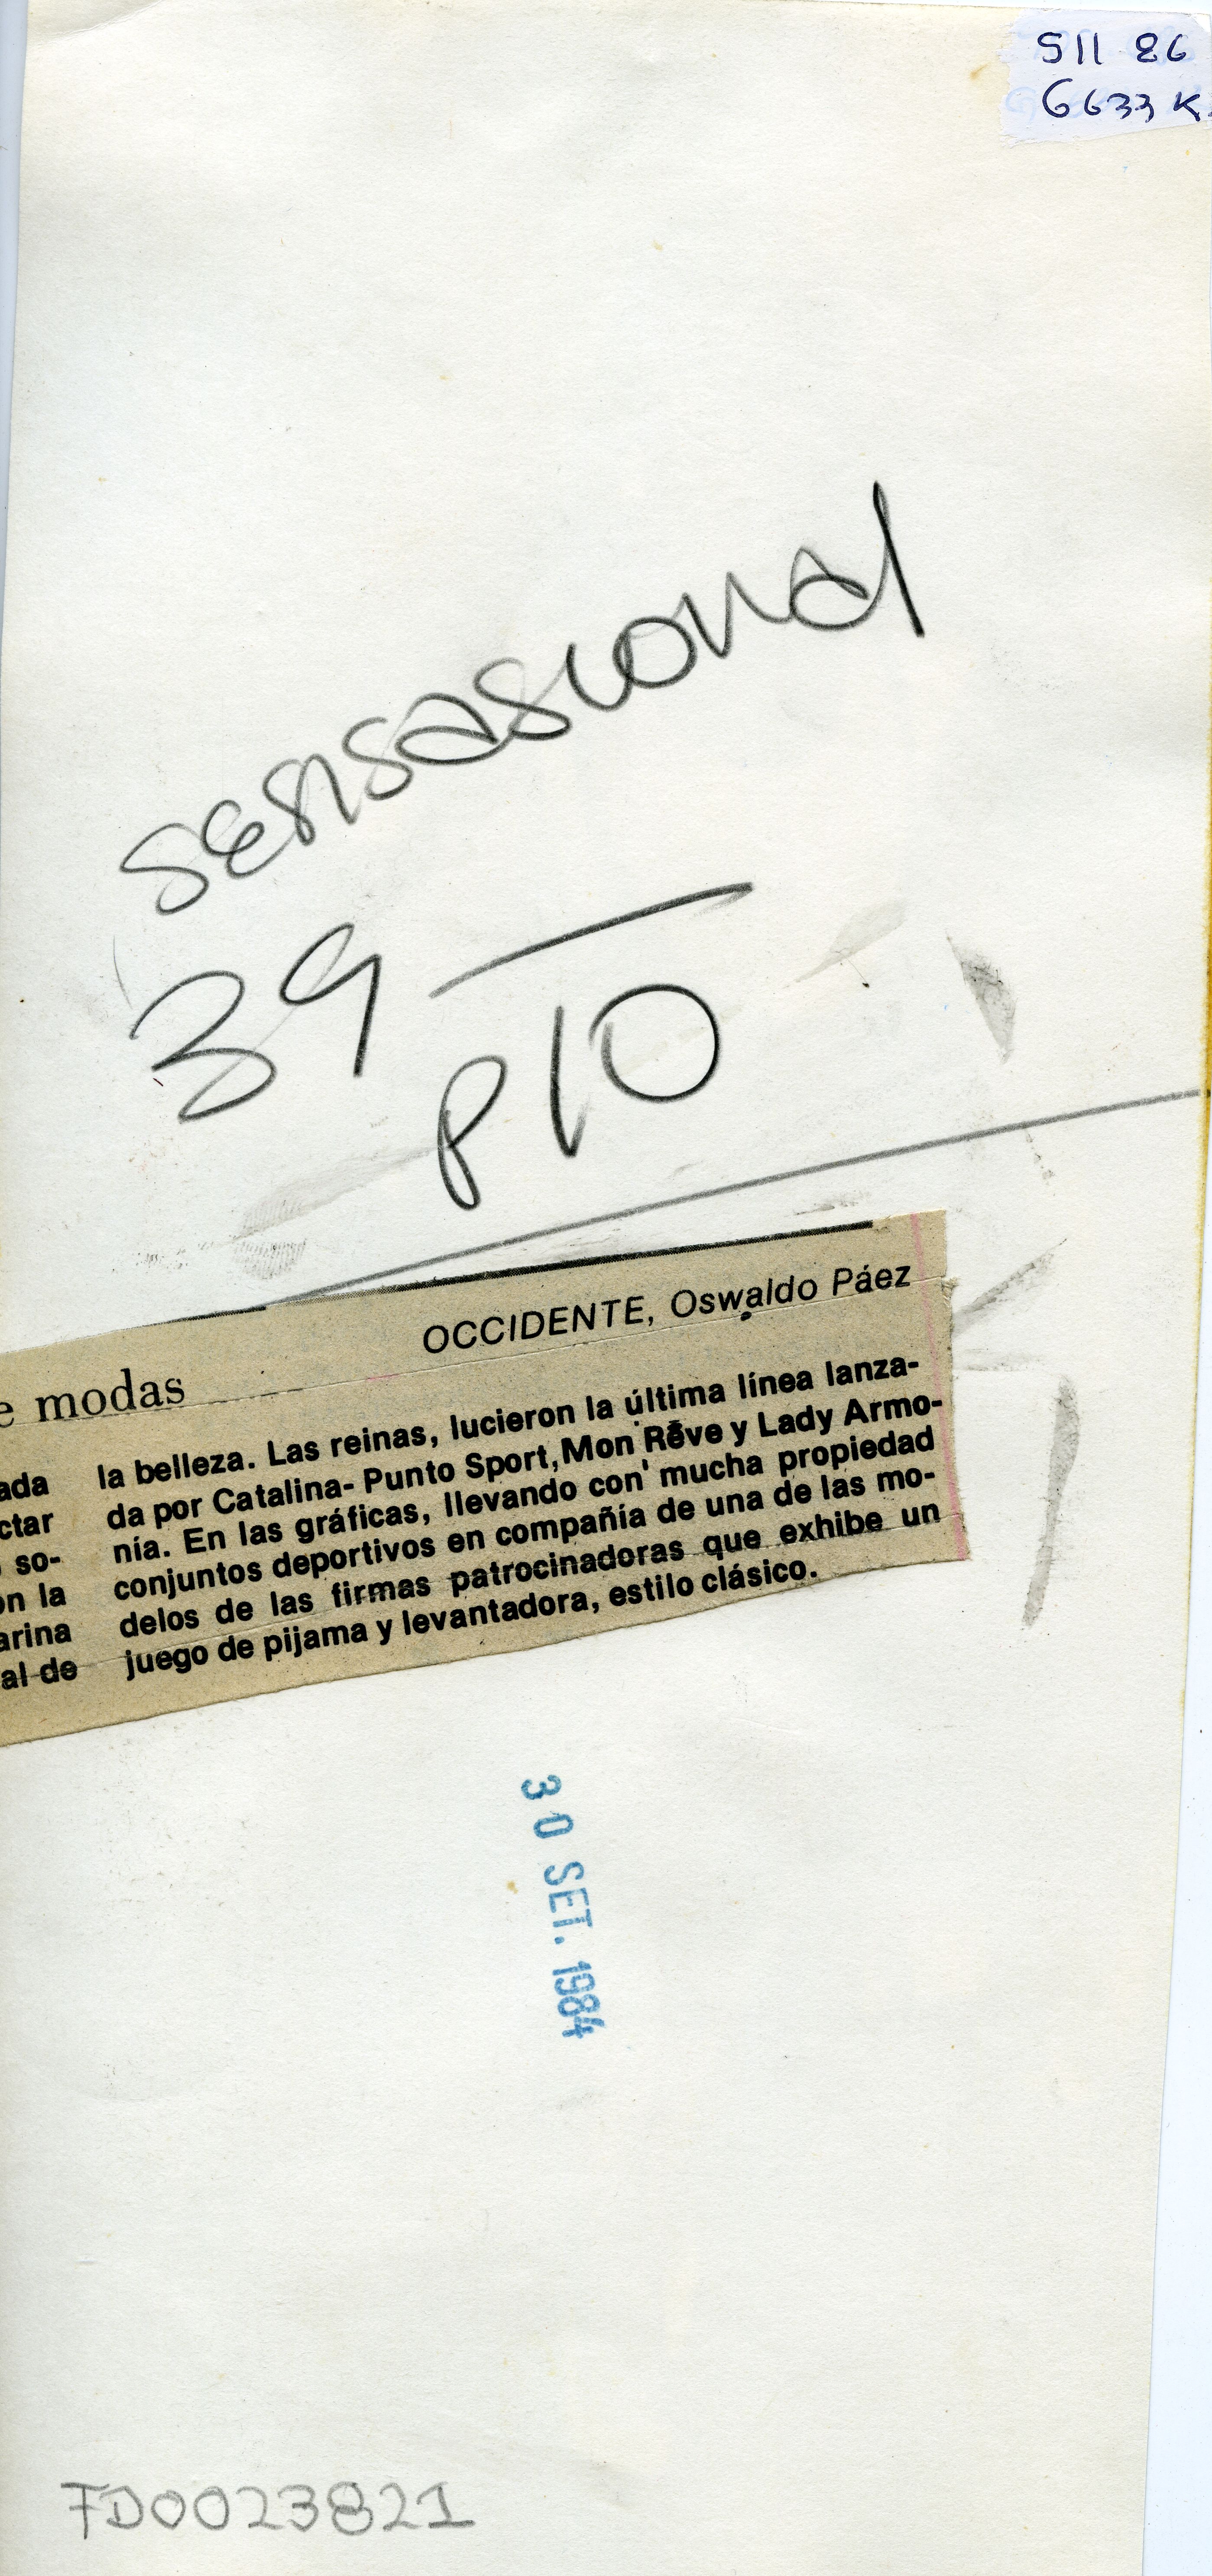 S11 86
6633 K
sensasional
39
P10
OCCIDENTE, Oswaldo Páez
e modas
ada
ctar
so-
on la
arina
al de
la belleza. Las reinas, lucieron la última línea lanza-
da por Catalina- Punto Sport, Mon Rêve y Lady Armo-
nía. En las gráficas, llevando con mucha propiedad
conjuntos deportivos en compañía de una de las mo-
delos de las firmas patrocinadoras que exhibe un
juego de pijama y levantadora, estilo clásico.
30 SET. 1984
FD0023821